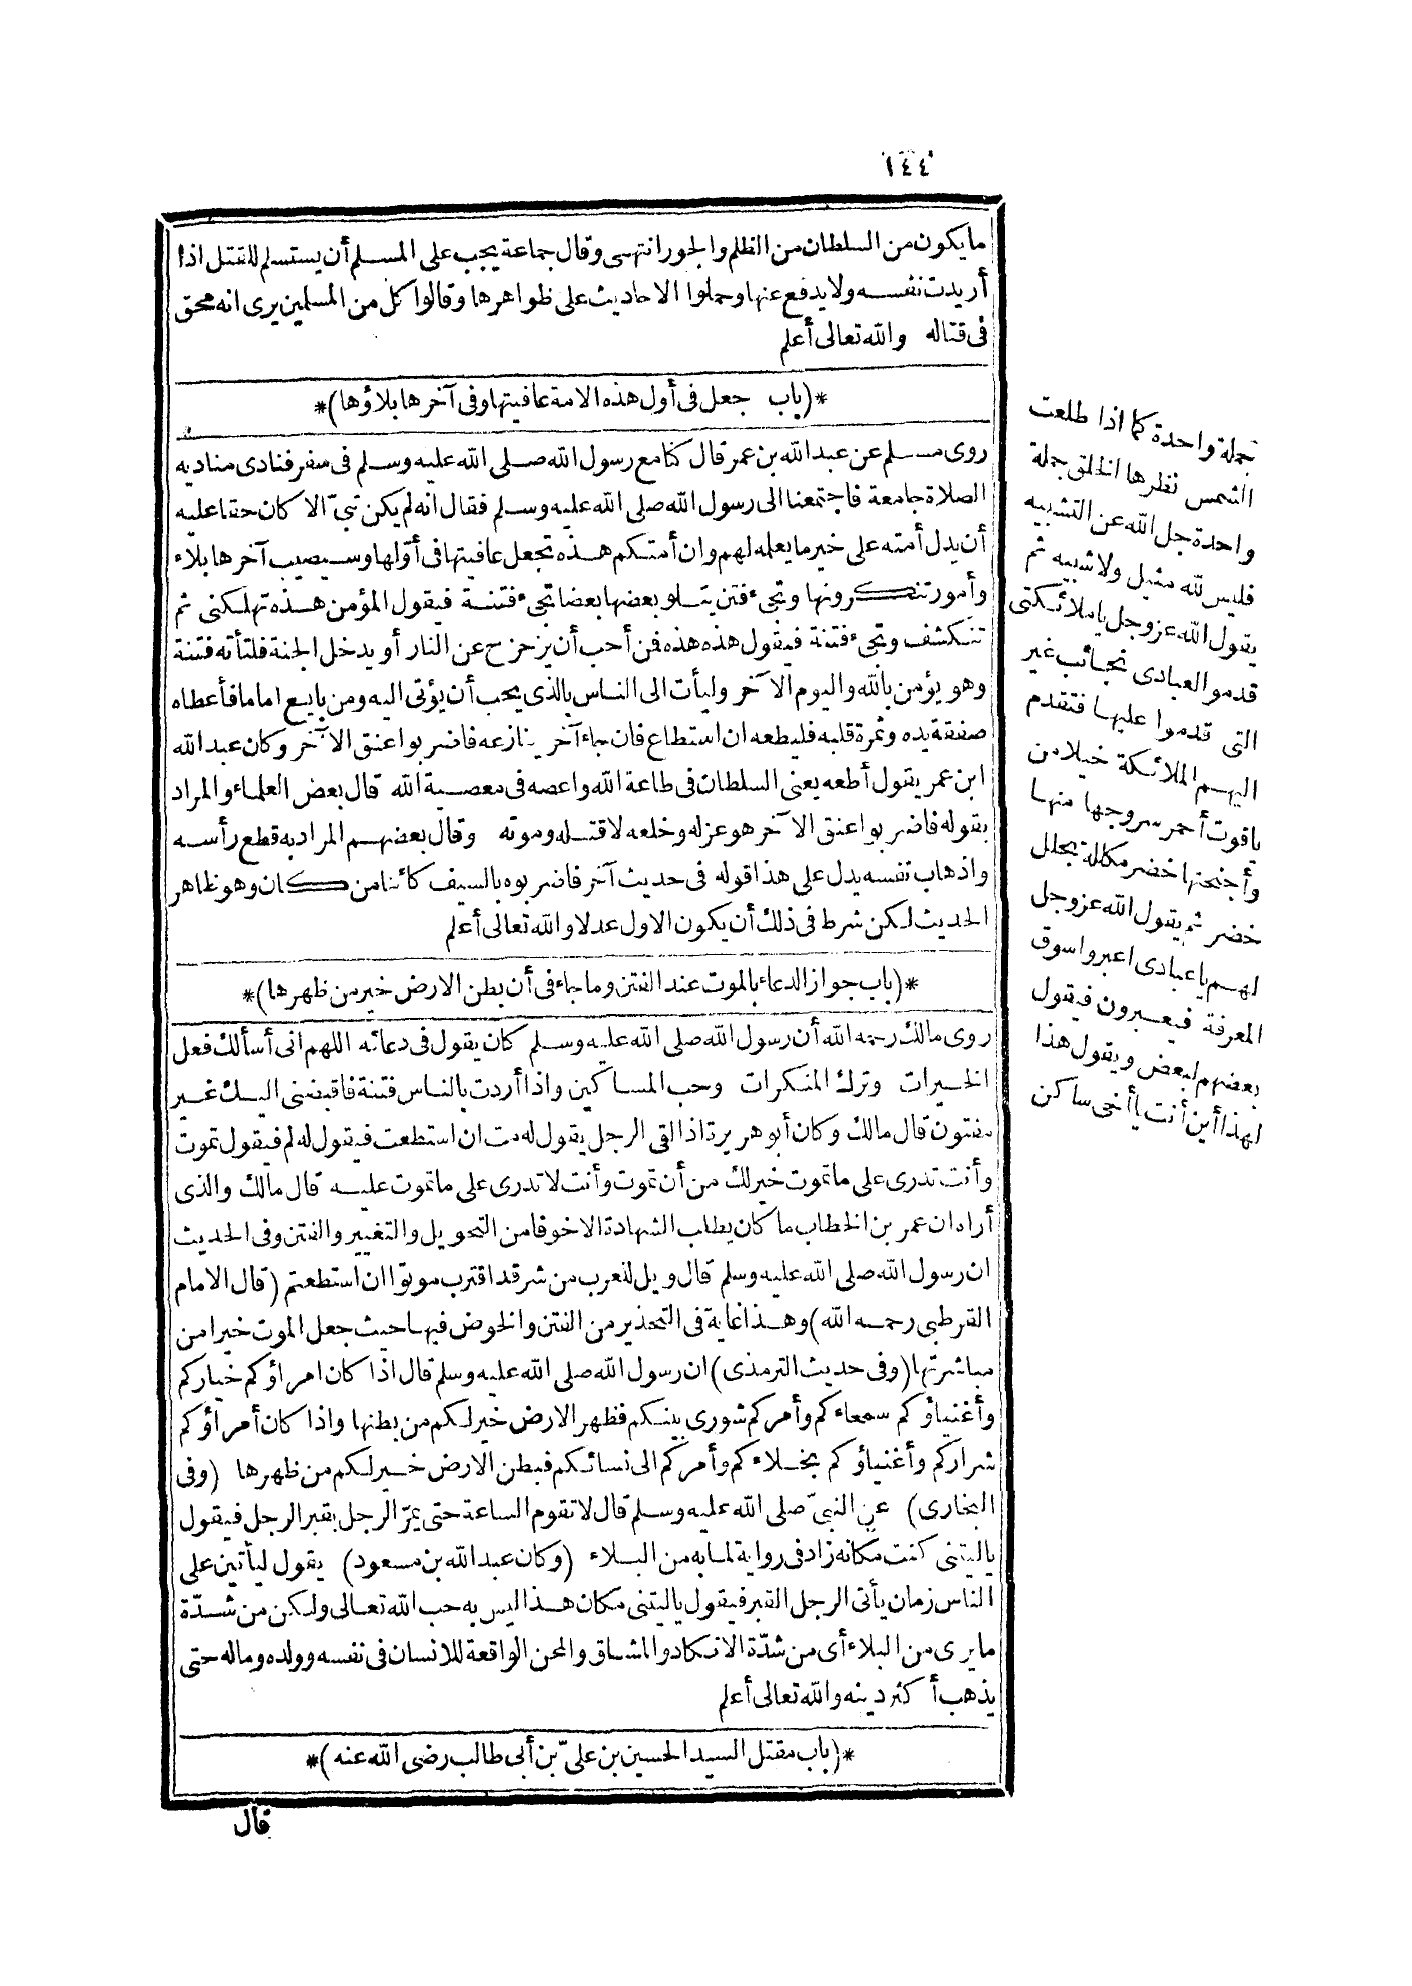 ١٤٤
ما يكون من السلطان من الظلم والجور انتهى وقال جماعة يجب على المسلم أن يستسلم للقتل اذا
أريدت نفسه ولا يدفع عنها وحملوا الاحاديث على ظواهرها وقالوا كل من المسلمين يرى انه محق
فى قتاله والله تعالى أعلم
*(باب جعل فى أول هذه الامة عافيتها وفى آخرها بلاؤها)*
روى مسلم عن عبد الله بن عمر قال كنا مع رسول الله صلى الله عليه وسلم فى سفر فنادى مناديه
الصلاة جامعة فاجتمعنا الى رسول الله صلى الله عليه وسلم فقال انه لم يكن نبىّ الا كان حقا عليه
أن يدل أمته على خير ما يعله لهم وان أمتكم هذه تجعل عافيتها فى أوّلها وسيصيب آخرها بلاء
وأمور تنكرونها وتجىء فتن يتلو بعضها بعضا تجىء فتنة فيقول المؤمن هذه تهلكنى ثم
تنكشف وتجىء فتنة فيقول هذه هذه فمن أحب أن يزحزح عن النار أو يدخل الجنة فلتأته فتنة
وهو يؤمن بالله واليوم الآخر وليأت الى الناس بالذى يحب أن يؤتى اليه ومن بايع اماما فأعطاه
صفقة يده وثمرة قلبه فليطعه ان استطاع فان جاء آخر ينازعه فاضربوا عنق الآخر وكان عبد الله
ابن عمر يقول أطعه يعنى السلطان فى طاعة الله واعصه فى معصية الله قال بعض العلماء والمراد
بقوله فاضربوا عنق الآخر هو عزله وخلعه لا قتله وموته وقال بعضهم المراد به قطع رأسه
واذهاب نفسه يدل على هذا قوله فى حديث آخر فاضربوه بالسيف كائنا من كان وهو ظاهر
الحديث لكن شرط فى ذلك أن يكون الاول عدلا والله تعالى أعلم
*(باب جواز الدعاء بالموت عند الفتن وما جاء فى أن بطن الارض خير من ظهرها)*
روى مالك رحمه الله أن رسول الله صلى الله عليه وسلم كان يقول فى دعائه اللهم انى أسألك فعل
الخيرات وترك المنكرات وحب المساكين واذا أردت بالناس فتنة فاقبضنى اليك غير
مفتون قال مالك وكان أبو هريرة اذا لقى الرجل يقول له مت ان استطعت فيقول له لم فيقول تموت
وأنت تدرى على ما تموت خير لك من أن تموت وأنت لا تدرى على ما تموت عليه قال مالك والذى
أراد ان عمر بن الخطاب ما كان يطلب الشهادة الا خوفا من التحويل والتغيير والفتن وفى الحديث
ان رسول الله صلى الله عليه وسلم قال ويل للعرب من شر قد اقترب موتوا ان استطعتم (قال الامام
القرطبى رحمه الله) وهذا غاية فى التحذير من الفتن والخوض فيها حيث جعل الموت خيرا من
مباشرتها (وفى حديث الترمذى) ان رسول الله صلى الله عليه وسلم قال اذا كان امراؤكم خياركم
وأغنياؤكم سمعاءكم وأمركم شورى بينكم فظهر الارض خير لكم من بطنها واذا كان أمراؤكم
شراركم وأغنياؤكم بخلاءكم وأمركم الى نسائكم فبطن الارض خير لكم من ظهرها (وفى
البخارى) عن النبىّ صلى الله عليه وسلم قال لا تقوم الساعة حتى يمرّ الرجل بقبر الرجل فيقول
ياليتنى كنت مكانه زاد فى رواية لما به من البلاء (وكان عبد الله بن مسعود) يقول ليأتين على
الناس زمان يأتى الرجل القبر فيقول ياليتنى مكان هذا ليس به حب الله تعالى ولكن من شدّة
ما يرى من البلاء أى من شدّة الانكاد والمشاق والمحن الواقعة للانسان فى نفسه وولده وماله حتى
يذهب أكثر دينه والله تعالى أعلم
*(باب مقتل السيد الحسين بن علىّ بن أبى طالب رضى الله عنه)*
قال
جملة واحدة كما اذا طلعت
الشمس نظرها الخلق جملة
واحدة جل الله عن التشبيه
فليس لله مثيل ولا شبيه ثم
يقول الله عز وجل يا ملائكتى
قدموا لعبادى نجائب غير
التى قدموا عليها فتقدم
اليهم الملائكة خيلا من
ياقوت أحمر سروجها منها
وأجنحتها خضر مكللة بحلل
خضر ثم يقول الله عز وجل
لهم يا عبادى اعبروا سوق
المعرفة فيعبرون فيقول
بعضهم لبعض ويقول هذا
لهذا أين أنت يا أخى ساكن